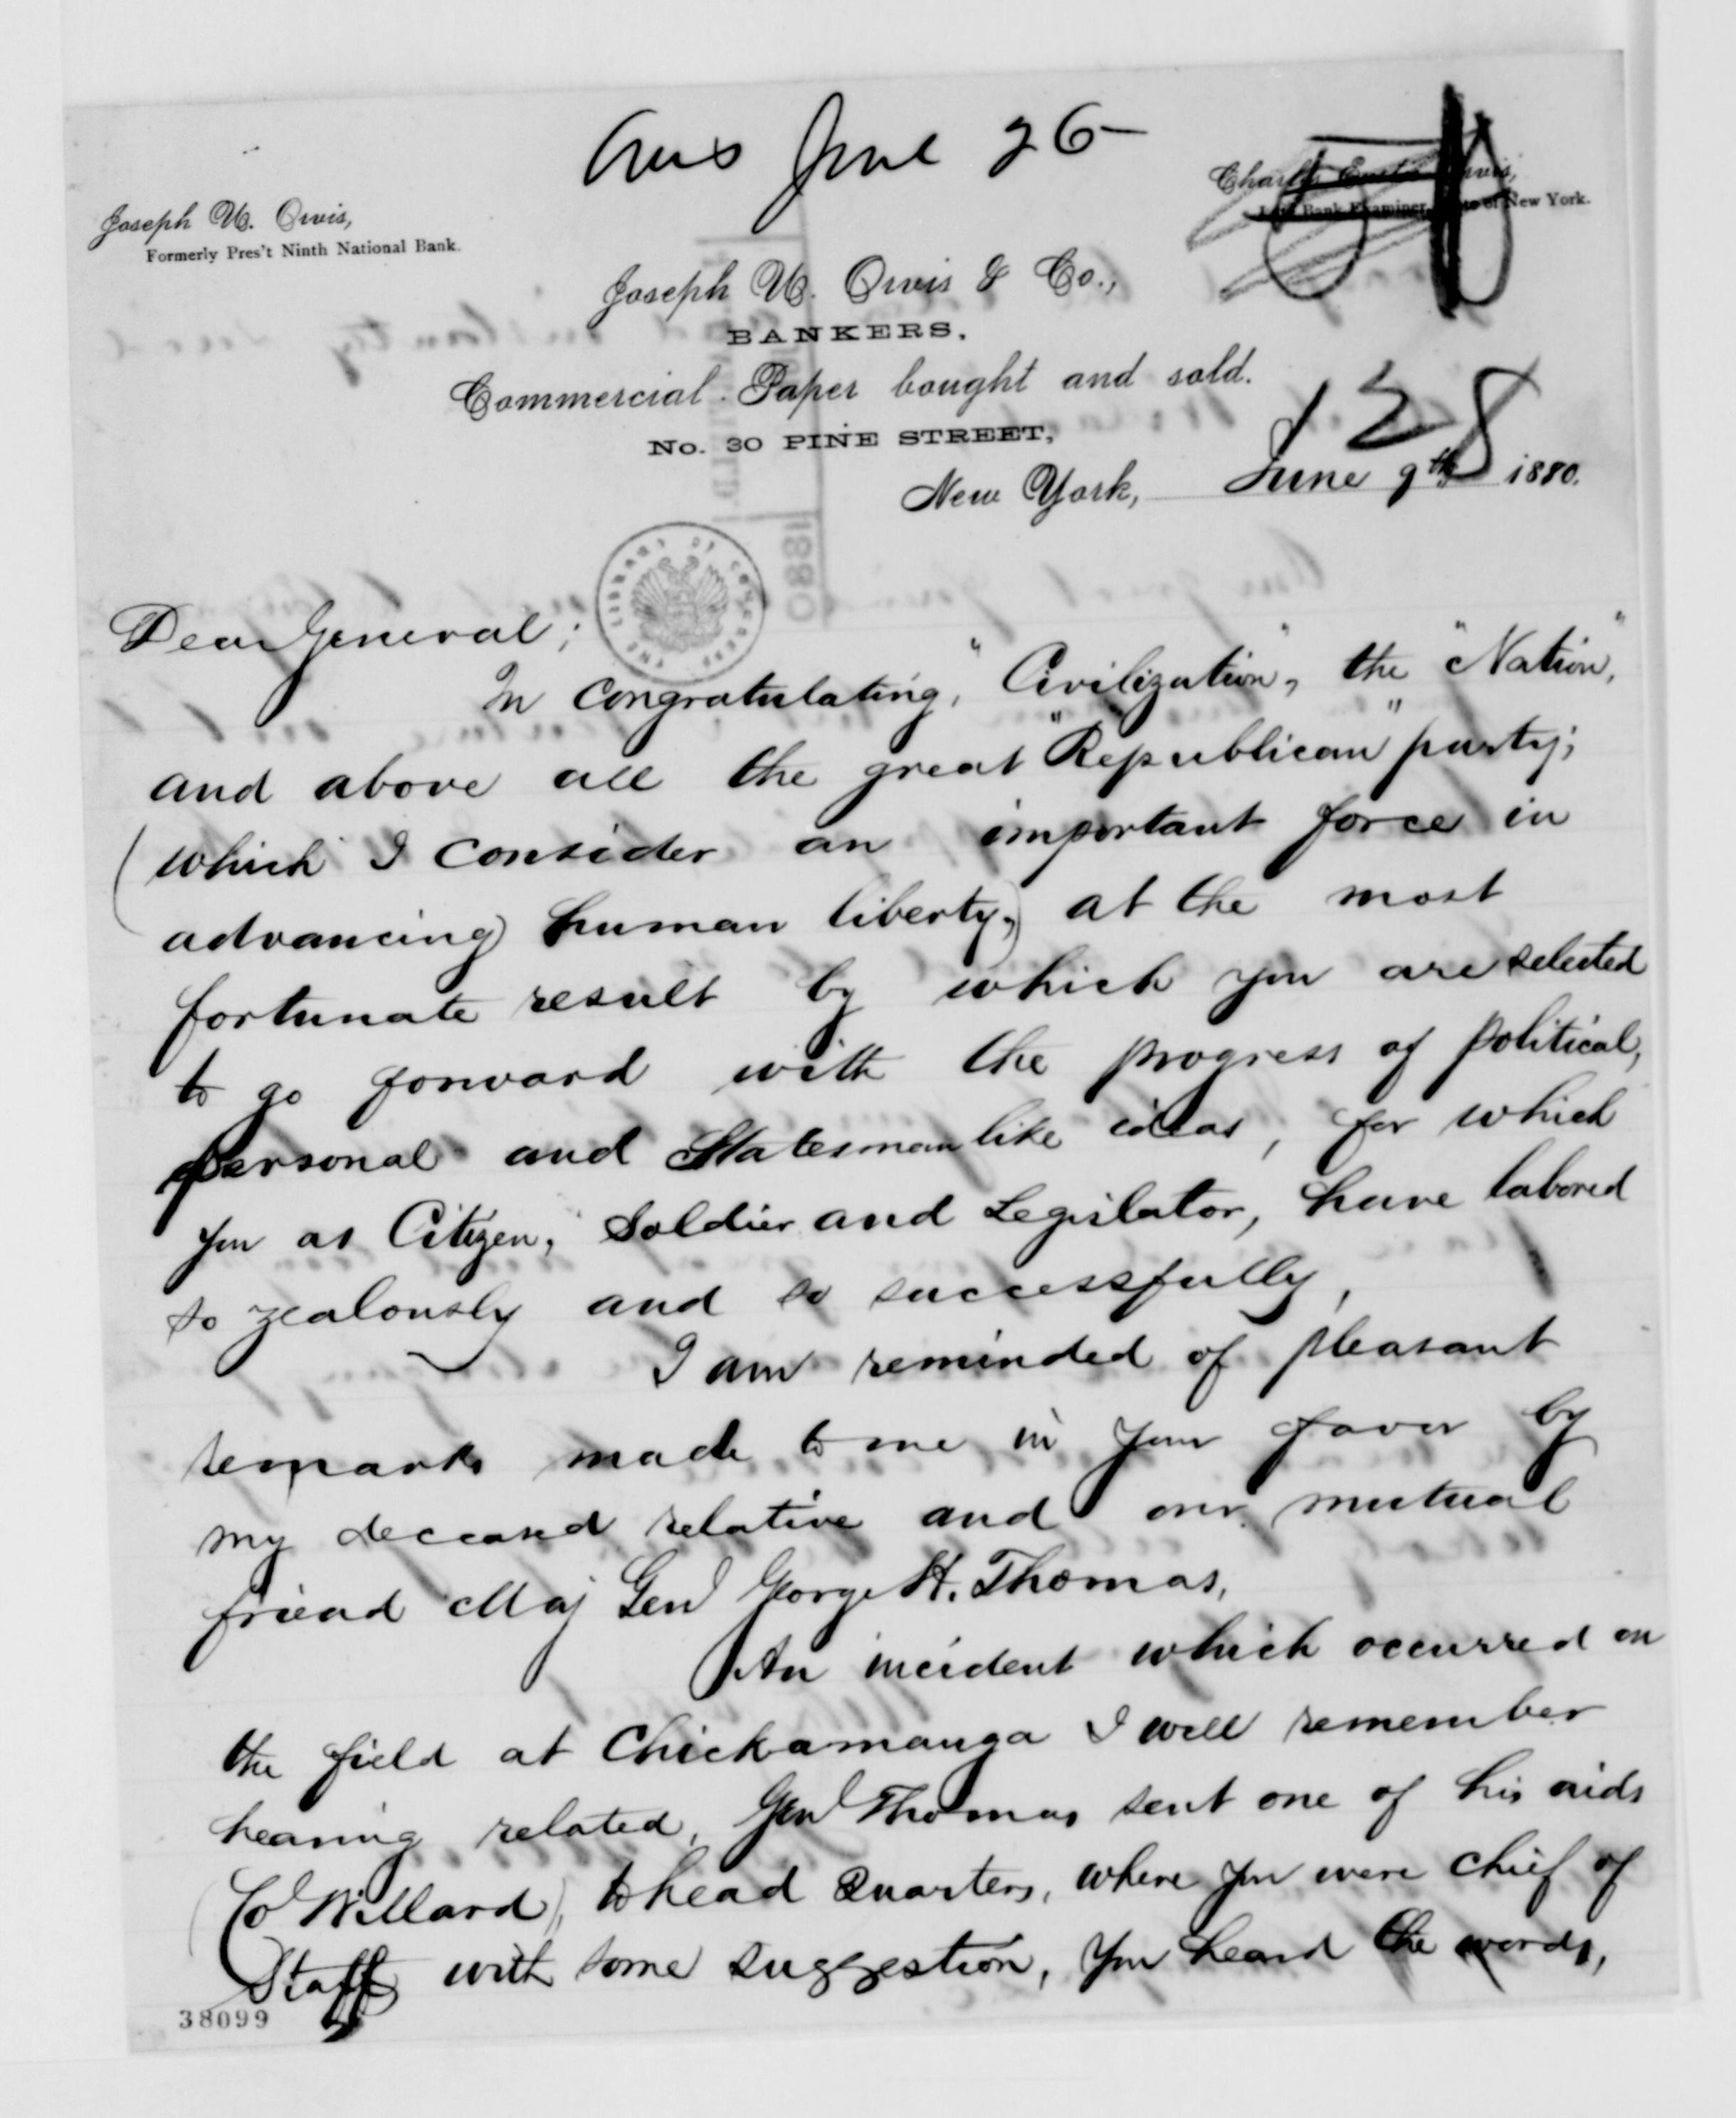 Ans June 26
Joseph U. Orvis,
Formerly Pres't Ninth National Bank.
Bank Examiner, of New York.
Joseph U. Orvis & Co.,
BANKERS.
Commercial Paper bought and sold.
No. 30 PINE STREET,
128
New York, June 9th 1880.
THE LIBRARY OF CONGRESS
1880
Dear General;
In congratulating, "Civilization", the "Nation",
and above all the great "Republican" party;
(which I consider an important force in
advancing human liberty,) at the most
fortunate result by which you are selected
to go forward with the progress of political,
personal and Statesmanlike ideas, for which
you as Citizen, Soldier and Legislator, have labored
so zealously and so successfully,
I am reminded of pleasant
remarks made to me in your favor by
my deceased relative and our mutual
friend Maj Genl George H. Thomas,
An incident which occurred on
the field at Chickamauga I well remember
hearing related, Genl Thomas sent one of his aids
(Col Willard), to head Quarters, where you were chief of
Staff with some suggestion, you heard the words,
38099